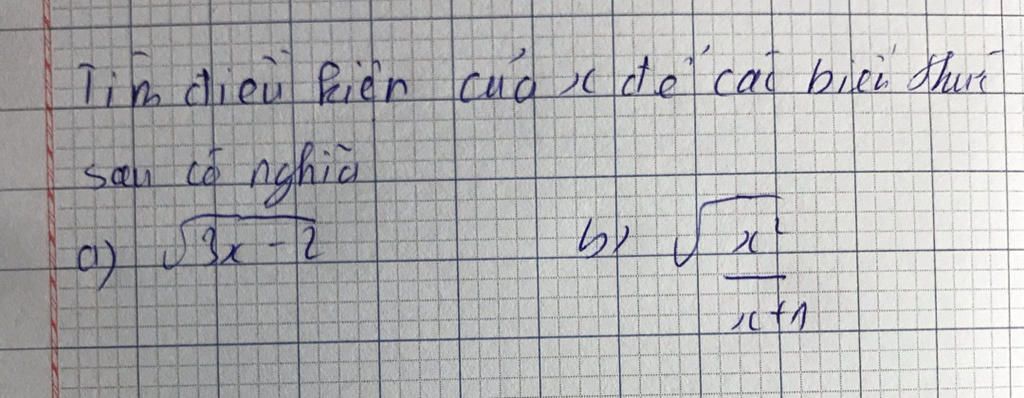 Tìm điều kiện của x để các biểu thức
sau có nghĩa
a) √3x - 2 b) √x²/x+1